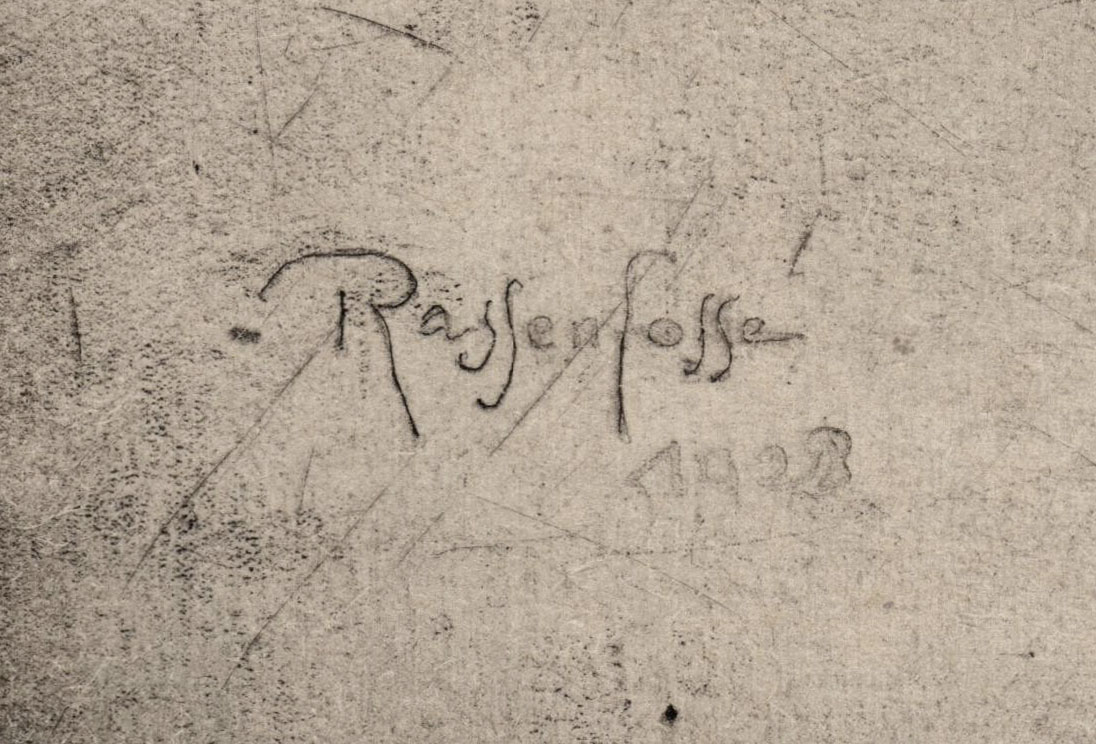 Rassenfossé
1928